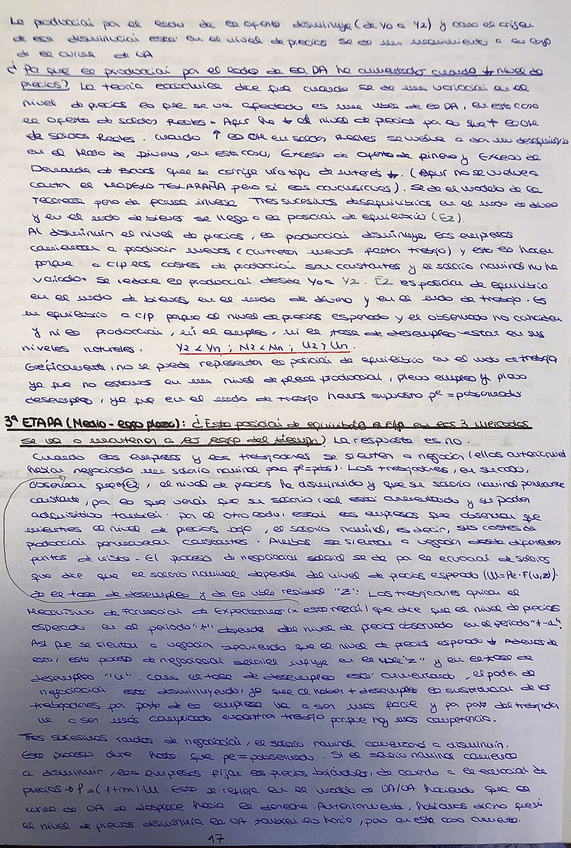 La producción por el lado de la oferta disminuye (de Yo a Y2) y como el origen
de esa disminución está en el nivel de precios se da un movimiento a lo largo
de la curva de OA
¿Por qué la producción por el lado de la DA ha aumentado cuando ↓ nivel de
precios? La teoría económica dice que cuando se da una variación en el
nivel de precios lo que se ve afectado es una vble de la DA, en este caso
la oferta de saldos reales. Aquí ha ↓ el nivel de precios por lo que ↑ la oferta
de saldos reales. Cuando ↑ la oferta en saldos reales se vuelve a dar un desequilibrio
en el mdo de dinero, en este caso, Exceso de oferta de dinero y Exceso de
Demanda de Bonos que se corrige vía tipo de interés ↓. (Aquí no se vuelve a
contar el MODELO TELARAÑA pero sí las conclusiones). Se da el modelo de la
telaraña pero de forma inversa. Tras sucesivos desequilibrios en el mdo de dinero
y en el mdo de bienes se llega a la posición de equilibrio (E2).
Al disminuir el nivel de precios, la producción disminuye las empresas
comienzan a producir menos (contratan menos factor trabajo) y esto lo hacen
porque a c/p los costes de producción son constantes y el salario nominal no ha
variado. Se reduce la producción desde Yo a Y2. E2 es posición de equilibrio
en el mdo de bienes, en el mdo de dinero y en el mdo de trabajo. Es
un equilibrio a c/p porque el nivel de precios esperado y el observado no coinciden
y ni la producción, ni el empleo, ni la tasa de desempleo están en sus
niveles naturales. Y2 < Yn ; N2 < Nn ; U2 > Un.
Gráficamente, no se puede representar la posición de equilibrio en el mdo de trabajo
ya que no estamos en un nivel de plena producción, pleno empleo y pleno
desempleo, ya que en el mdo de trabajo hemos supuesto pe = pobservado
3ª ETAPA (Medio-largo plazo): ¿Esta posición de equilibrio a c/p en los 3 mercados
se va a mantener a lo largo del tiempo? La respuesta es no.
Cuando las empresas y los trabajadores se sientan a negociar (ellos anteriormente
habían negociado un salario nominal para pe=pobs). Los trabajadores, en su caso,
observan que E2, el nivel de precios ha disminuido y que su salario nominal permanece
constante, por lo que verán que su salario real está aumentando y su poder
adquisitivo también. Por el otro lado, están las empresas que observan que
mientras el nivel de precios bajó, el salario nominal, es decir, sus costes de
producción permanecen constantes. Ambos se sientan a negociar desde diferentes
puntos de vista. El proceso de negociación salarial se da por la ecuación de salarios
que dice que el salario nominal depende del nivel de precios esperado (W=Pe·F(u,z)).
de la tasa de desempleo y de la vble residual "Z". Los trabajadores aplican el
Mecanismo de Formación de Expectativas que dice que el nivel de precios
esperado en el periodo "t" depende del nivel de precios observado en el periodo "t-1".
Así que se sientan a negociar sabiendo que el nivel de precios esperado ↓. Además de
esto, este proceso de negociación salarial influye en la vble "z" y en la tasa de
desempleo "u". Como la tasa de desempleo está aumentando, el poder de
negociación está disminuyendo, ya que al haber + desempleo la sustitución de los
trabajadores por parte de la empresa va a ser más fácil y por parte del trabajador
va a ser más complicado encontrar trabajo porque hay más competencia.
Tras sucesivas rondas de negociación, el salario nominal comenzará a disminuir.
Este proceso dura hasta que pe = pobservado. Si el salario nominal comienza
a disminuir, las empresas fijan los precios bajándolos, de acuerdo a la ecuación de
precios → P = (1+m)W. Esto se refleja en el modelo de DA/OA haciendo que la
curva de OA se desplace hacia la derecha. Anteriormente, habíamos dicho que si
el nivel de precios disminuía la OA también lo hacía, pero en este caso aumenta.
17